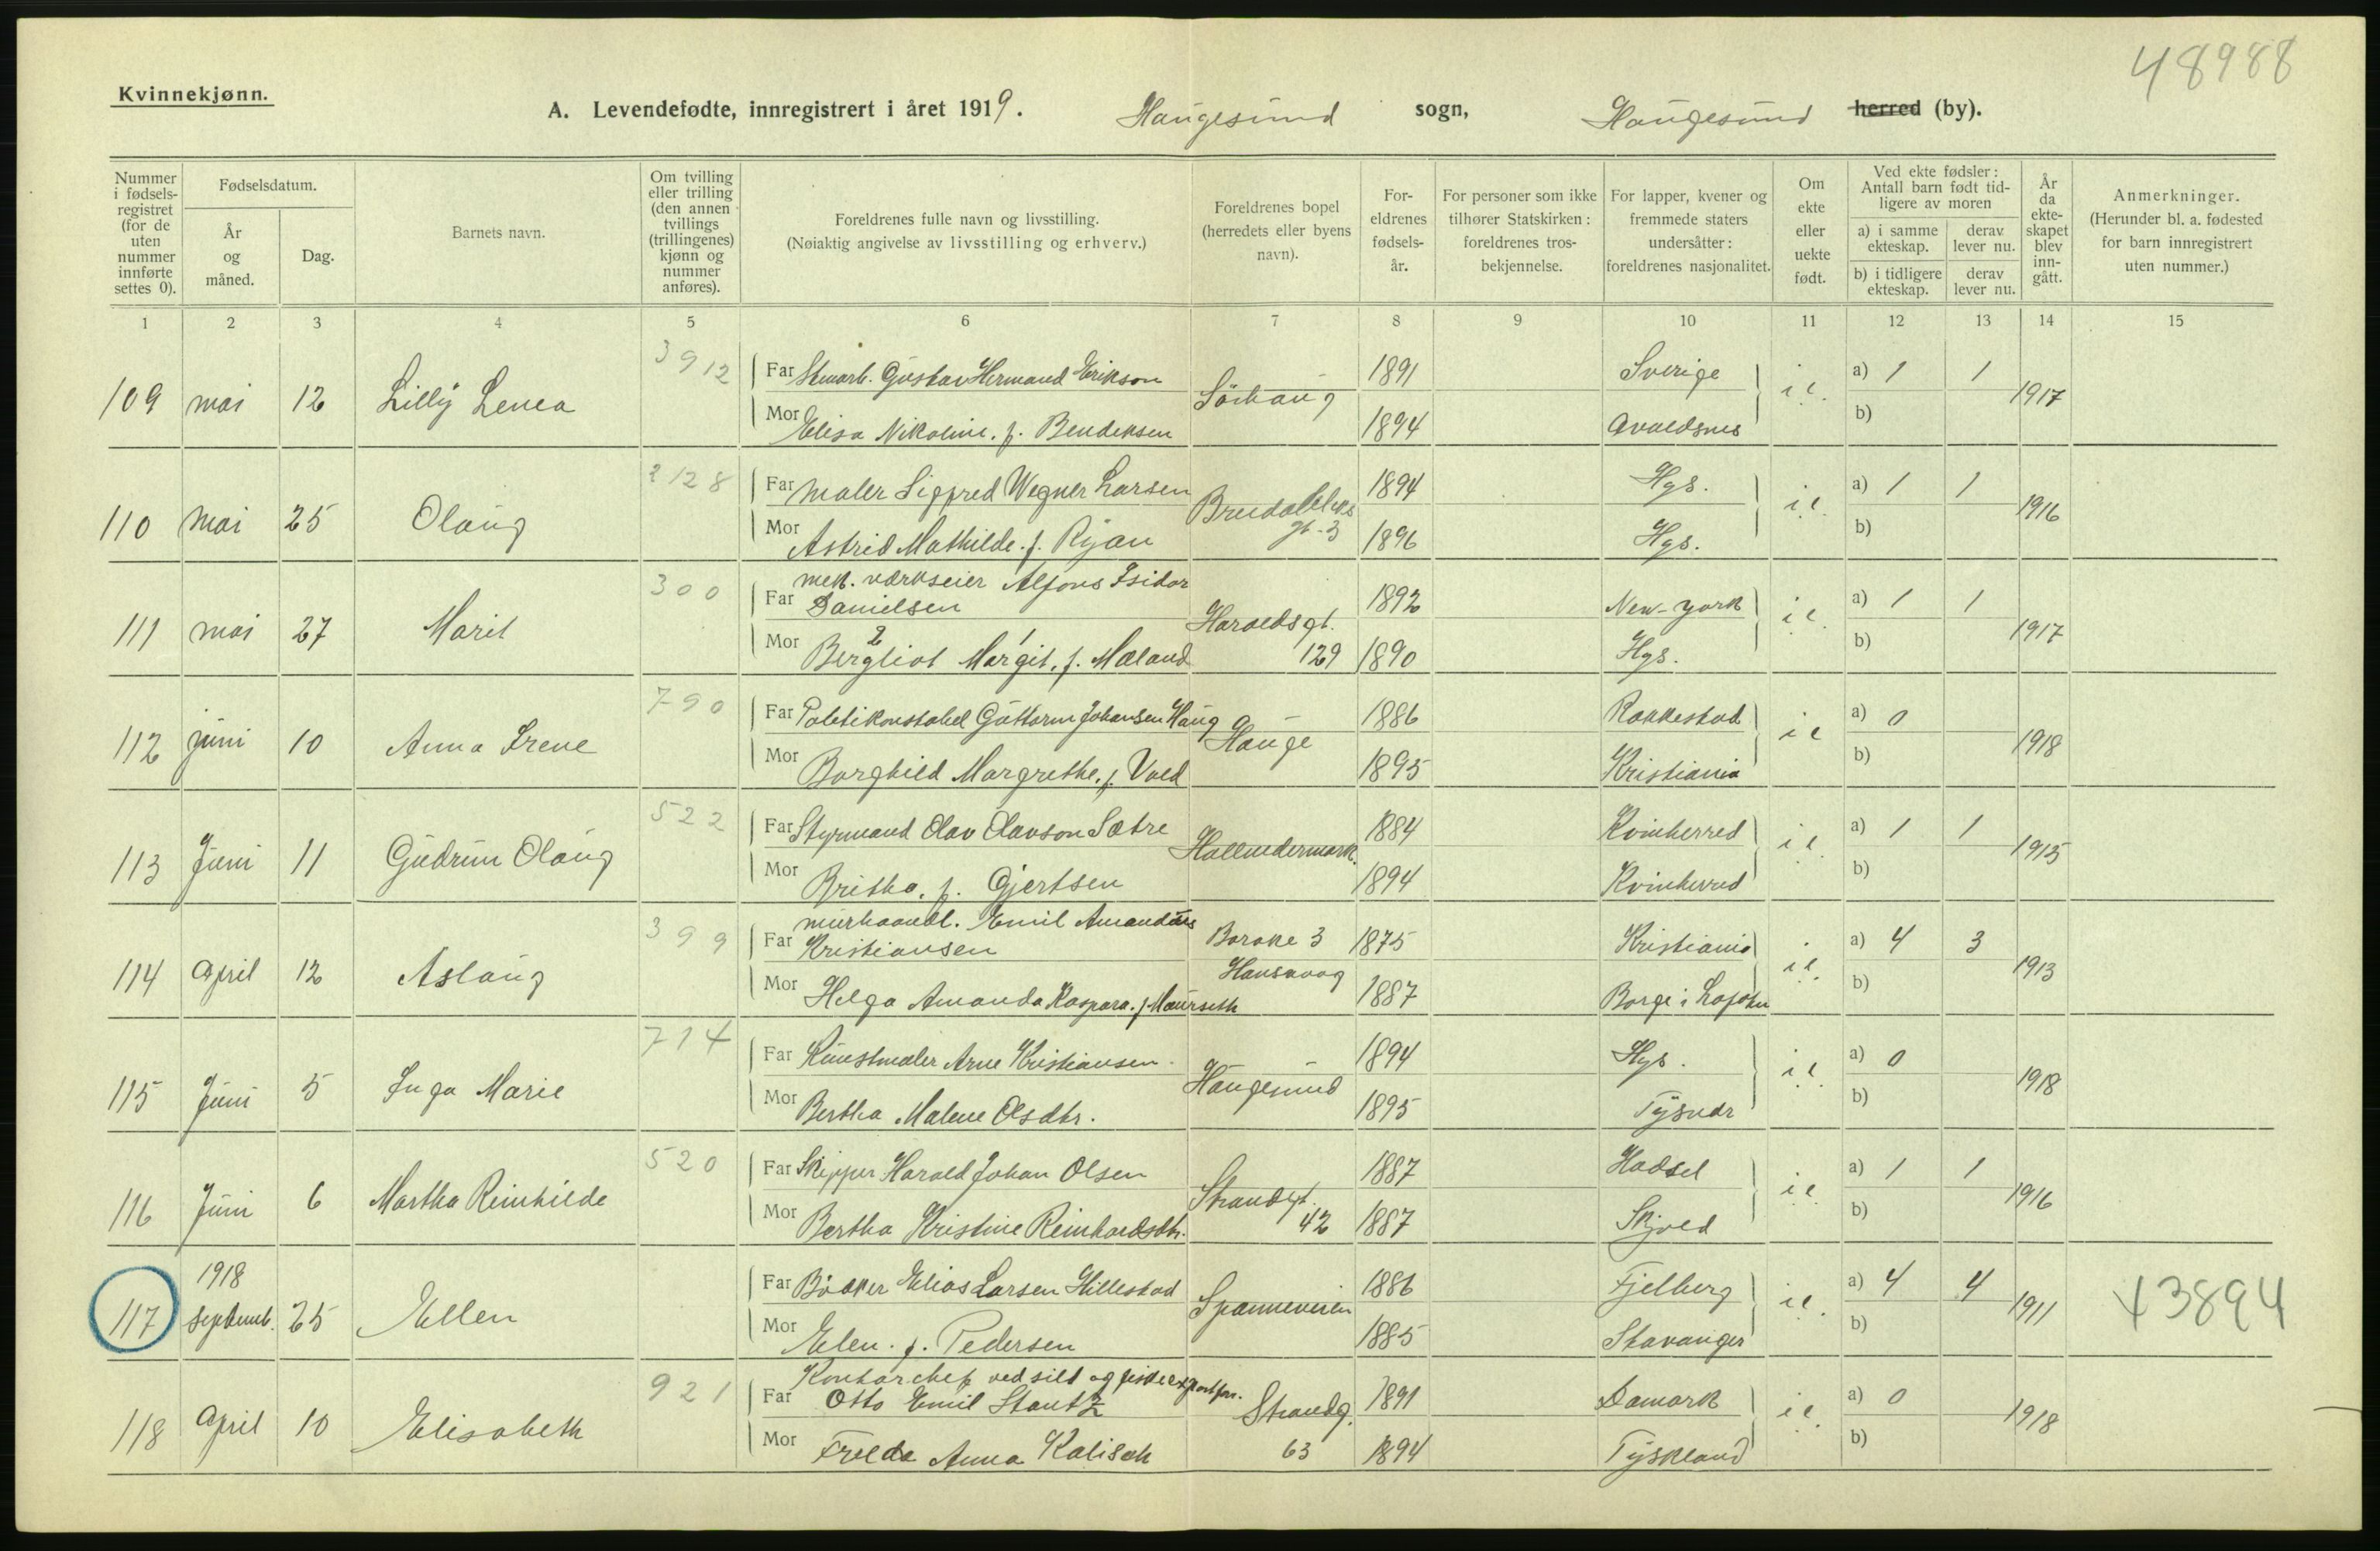 48988
Kvinnekjønn.
A. Levendefødte, innregistrert i året 1919. Haugesund sogn, Haugesund herred (by).
Nummer i fødselsregistret (for de uten nummer innførte settes 0).
Fødselsdatum.
År og måned.
Dag.
Barnets navn.
Om tvilling eller trilling (den annen tvillings (trillingenes) kjønn og nummer anføres).
Foreldrenes fulle navn og livsstilling.
(Nøiaktig angivelse av livsstilling og erhverv.)
Foreldrenes bopel (herredets eller byens navn).
Foreldrenes fødselsår.
For personer som ikke tilhører Statskirken: foreldrenes trosbekjennelse.
For lapper, kvener og fremmede staters undersåtter: foreldrenes nasjonalitet.
Om ekte eller uekte født.
Ved ekte fødsler: Antall barn født tidligere av moren
a) i samme ekteskap.
derav lever nu.
b) i tidligere ekteskap.
derav lever nu.
År da ekteskapet blev inngått.
Anmerkninger.
(Herunder bl. a. fødested for barn innregistrert uten nummer.)
1 2 3 4 5 6 7 8 9 10 11 12 13 14 15
3912 Far Gustav Hermand Erikson 1891 Sverige a) 1 1
109 mai 12 Lilly Lenea Sörhaug i e. 1917
Mor Elisa Nikoline. f. Bendiksen 1894 Avaldsnes b)
2128 Far Maler Sigfred Wegner Larsen 1894 Hgs. a) 1 1
110 mai 25 Olaug gt. 3 i.e. 1916
Mor Astrid Mathilde. f. Ryan 1896 Hgs. b)
300 mek. værkseier Alfons Isidor
Far Danielsen 1892 New-York a) 1 1
111 mai 27 Marit Haraldsgt. 129 i e. 1917
Mor Bergliot 2 Margit 1, f. Mæland 1890 Hgs. b)
790 Far Politikonstabel Guttorm Johansen Haug 1886 Rakkestad a) 0
112 juni 10 Anna Irene Hauge i e 1918
Mor Borghild Margrethe. f. Vold 1895 Kristiania b)
522 Far Styrmand Olav Olavson Sætre 1884 Kvinherred a) 1 1
113 Juni 11 Gudrun Olaug i e. 1915
Mor Britha. f. Gjertsen 1894 Kvinherred b)
399 murhaandl. Emil Amandus
Far Kristiansen Barake 3 1875 Kristiania a) 4 3
114 April 12 Aslaug i e. 1913
Mor Helga Amanda Kaspara. f. Maurseth 1887 Borge i Lofoten b)
714 Far Kunstmaler Arne Kristiansen. 1894 Hgs. a) 0
115 Juni 5 Inga Marie Haugesund i e. 1918
Mor Bertha Malene Olsdtr. 1895 Tysvær b)
520 Far Skipper Harald Johan Olsen 1887 Hadsel a) 1 1
116 Juni 6 Martha Reinhilde Strandgt. 42 i e. 1916
Mor Bertha Kristine Reinhardsdtr. 1887 Skjold b)
1918
Far Bödker Elias Larsen Hillestad 1886 Fjelberg a) 4 4
117 septemb. 25 Ellen Spanneveien i e. 1911 43894
Mor Elen. f. Pedersen 1885 Stavanger b)
921 Kontorchef ved sild og fiskeexportfor.
Far Otto Emil Stautz 1891 Damark a) 0
118 April 10 Elisabeth Strandg. 63 i e. 1918
Mor Frelda Anna Kalisch 1894 Tyskland b)